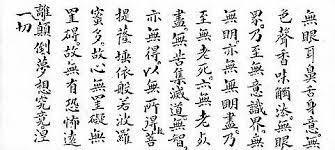 無眼耳鼻舌身意無
色聲香味觸法無眼
界乃至無意識界無
無明亦無無明盡乃
至無老死亦無老死
盡無苦集滅道無智
亦無得以無所得故菩
提薩埵依般若波羅
蜜多故心無罣礙無
罣礙故無有恐怖遠
離顛倒夢想究竟涅
一切